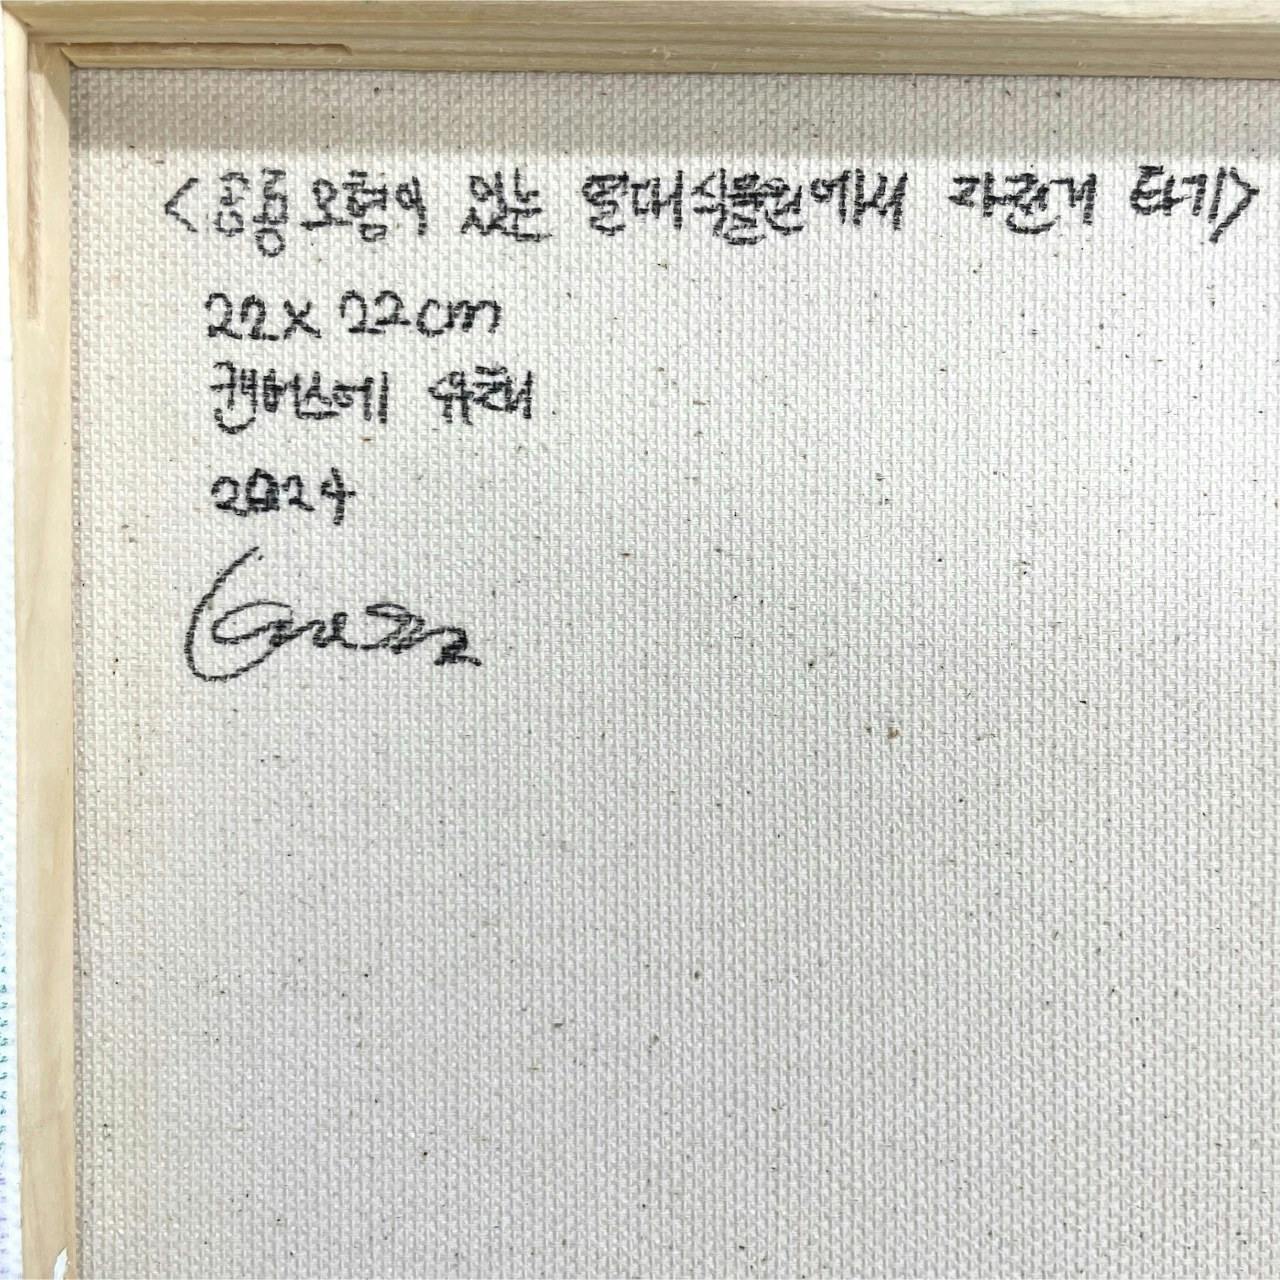 <공룡모형이 있는 열대식물원에서 자전거 타기>
22x22cm
캔버스에 유채
2024